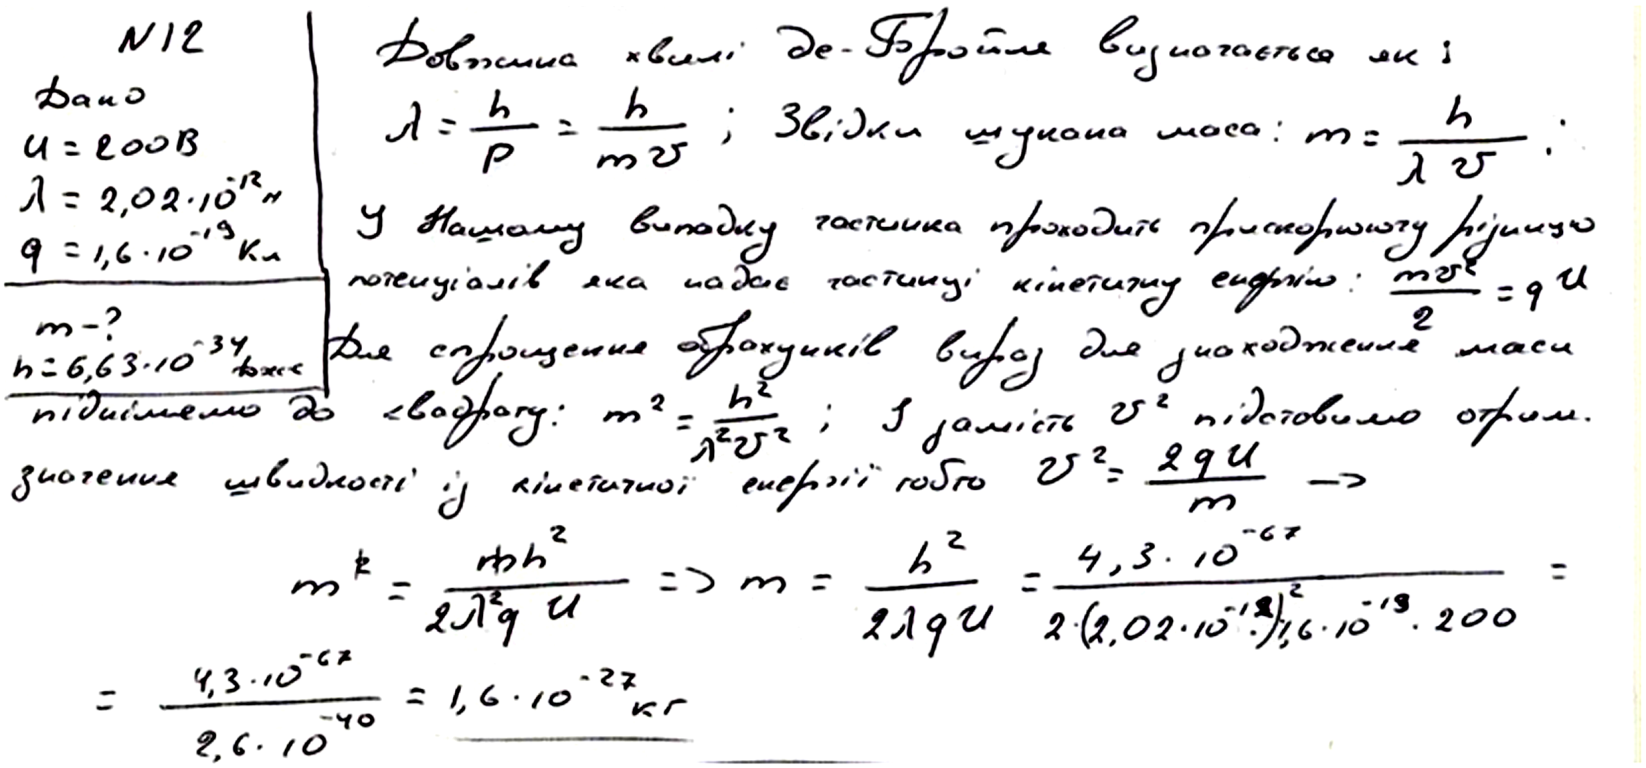 N12
Дано
U = 200В
λ = 2,02·10^-12 м
q = 1,6·10^-19 Кл
m-?
h = 6,63·10^-34 Дж·с
Довжина хвилі де-Бройля визначається як:
λ = h/p = h/(mυ) ; Звідки шукана маса: m = h/(λυ) :
У нашому випадку частинка проходить прискорюючу різницю
потенціалів яка надає частинці кінетичну енергію: mυ²/2 = qU
Для спрощення обрахунків вираз для знаходження маси
піднімемо до квадрату: m² = h²/(λ²υ²) ; І замість υ² підставимо отрим.
значення швидкості із кінетичної енергії тобто υ² = 2qU/m →
m² = mh²/(2λ²qU) => m = h²/(2λqU) = 4,3·10^-67/(2·(2,02·10^-12)²·1,6·10^-19·200) =
= 4,3·10^-67/(2,6·10^-40) = 1,6·10^-27 кг